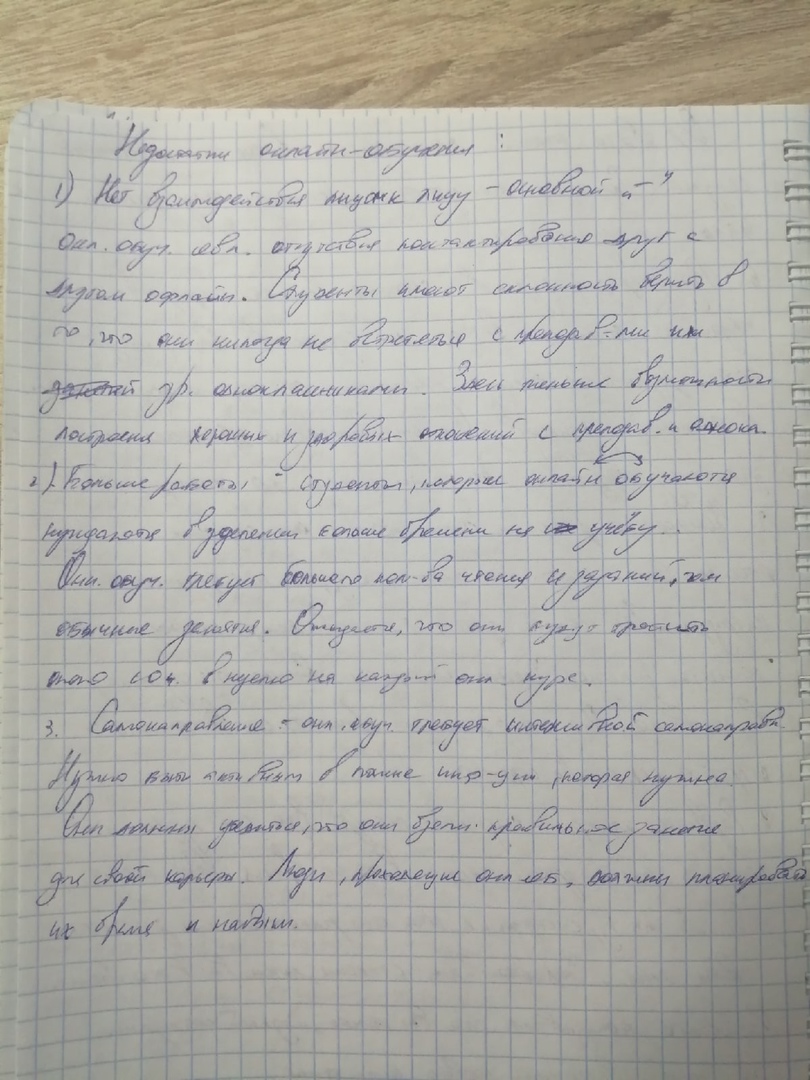 Недостатки онлайн-обучения :
1) Нет взаимодействия лицом к лицу - основной "-"
онл. обуч. явл. отсутствия контактирования друг с
другом офлайн. Студенты имеют склонность верить в
то, что они никогда не встретяться с преподав-ми или
др. одноклашниками. Здесь меньше возможности
построения хороших и здоровых отношений с преподав. и однокл.
2). Больше работы - студенты, которые онлайн обучаются
нуждаются в уделении больше времени на учёбу.
Онл. обуч. требует большего кол-ва чтения и заданий, чем
обычные занятия. Ожидается, что они будут тратить
около 10ч. в неделю на каждый онл. курс.
3. Самонаправление - онл. обуч. требует интенсивной самонаправл.
Нужно быть активным в поиске инф-ции, которая нужна.
Они должны убедиться, что они взяли правильные занятие
для своей карьеры. Люди, проходящие онл. об, должны планировать
их время и навыки.